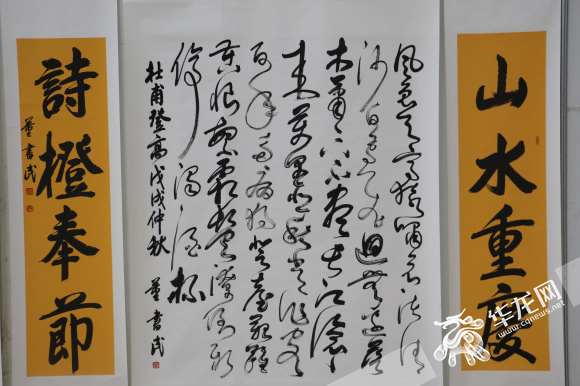 山水重慶
風急天高猿嘯哀渚清
沙白鳥飛迴無邊落
木蕭蕭下不盡長江滾滾
來萬里悲秋常作客
百年多病獨登臺艱難
苦恨繁霜鬢潦倒新
停濁酒杯
杜甫登高戊戌仲秋 董書民
詩橙奉節
董書民
华龙网
www.cqnews.net